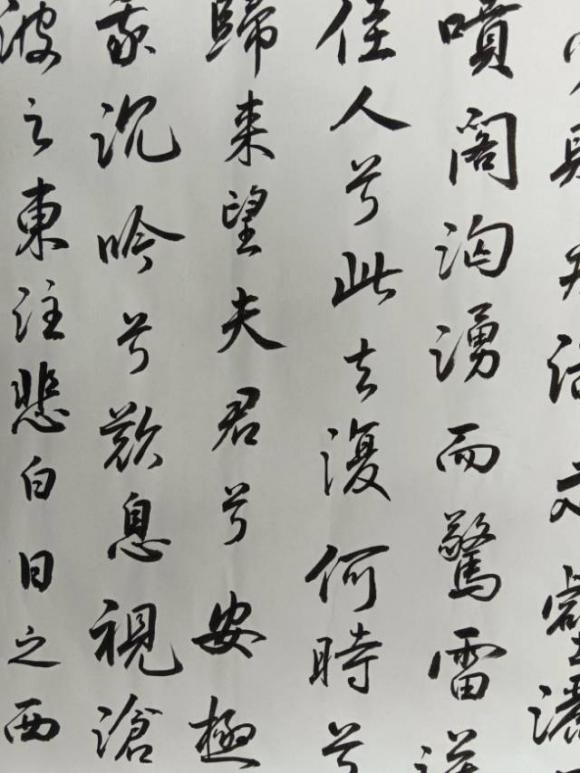 壑灑
噴閣洶湧而驚雷送
佳人兮此去復何時兮
歸来望夫君兮安極
我沉吟兮歎息視滄
波之東注悲白日之西